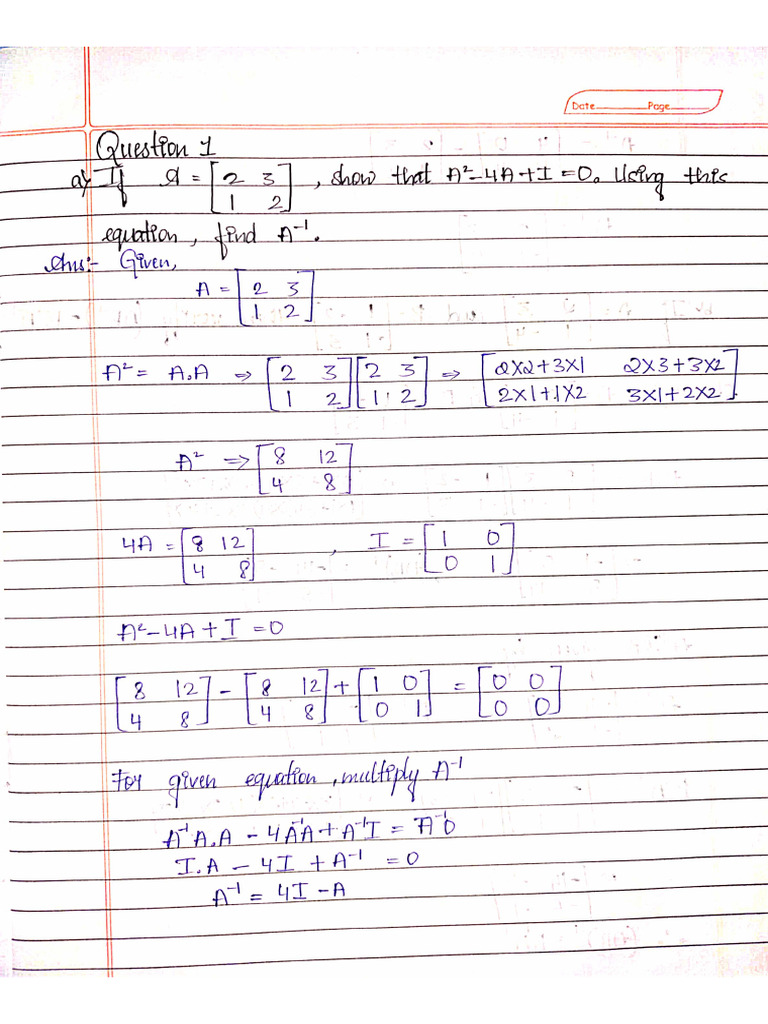 Date Page
Question 1
a) If A = [2 3 , show that A² - 4A + I = 0. Using this
1 2]
equation, find A⁻¹.
Ans:- Given,
A = [2 3
1 2]
A² = A.A ⇒ [2 3 [2 3 ⇒ [2×2+3×1 2×3+3×2
1 2] 1 2] 2×1+1×2 3×1+2×2]
A² ⇒ [8 12
4 8]
4A = [8 12 , I = [1 0
4 8] 0 1]
A² - 4A + I = 0
[8 12] - [8 12] + [1 0] = [0 0]
4 8 4 8 0 1 0 0
For given equation, multiply A⁻¹
A⁻¹A.A - 4A⁻¹A + A⁻¹I = A⁻¹0
I.A - 4I + A⁻¹ = 0
A⁻¹ = 4I - A